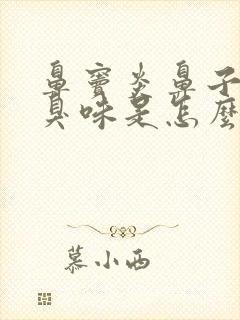 鼻窦炎鼻子
臭味是怎麽
慕小西